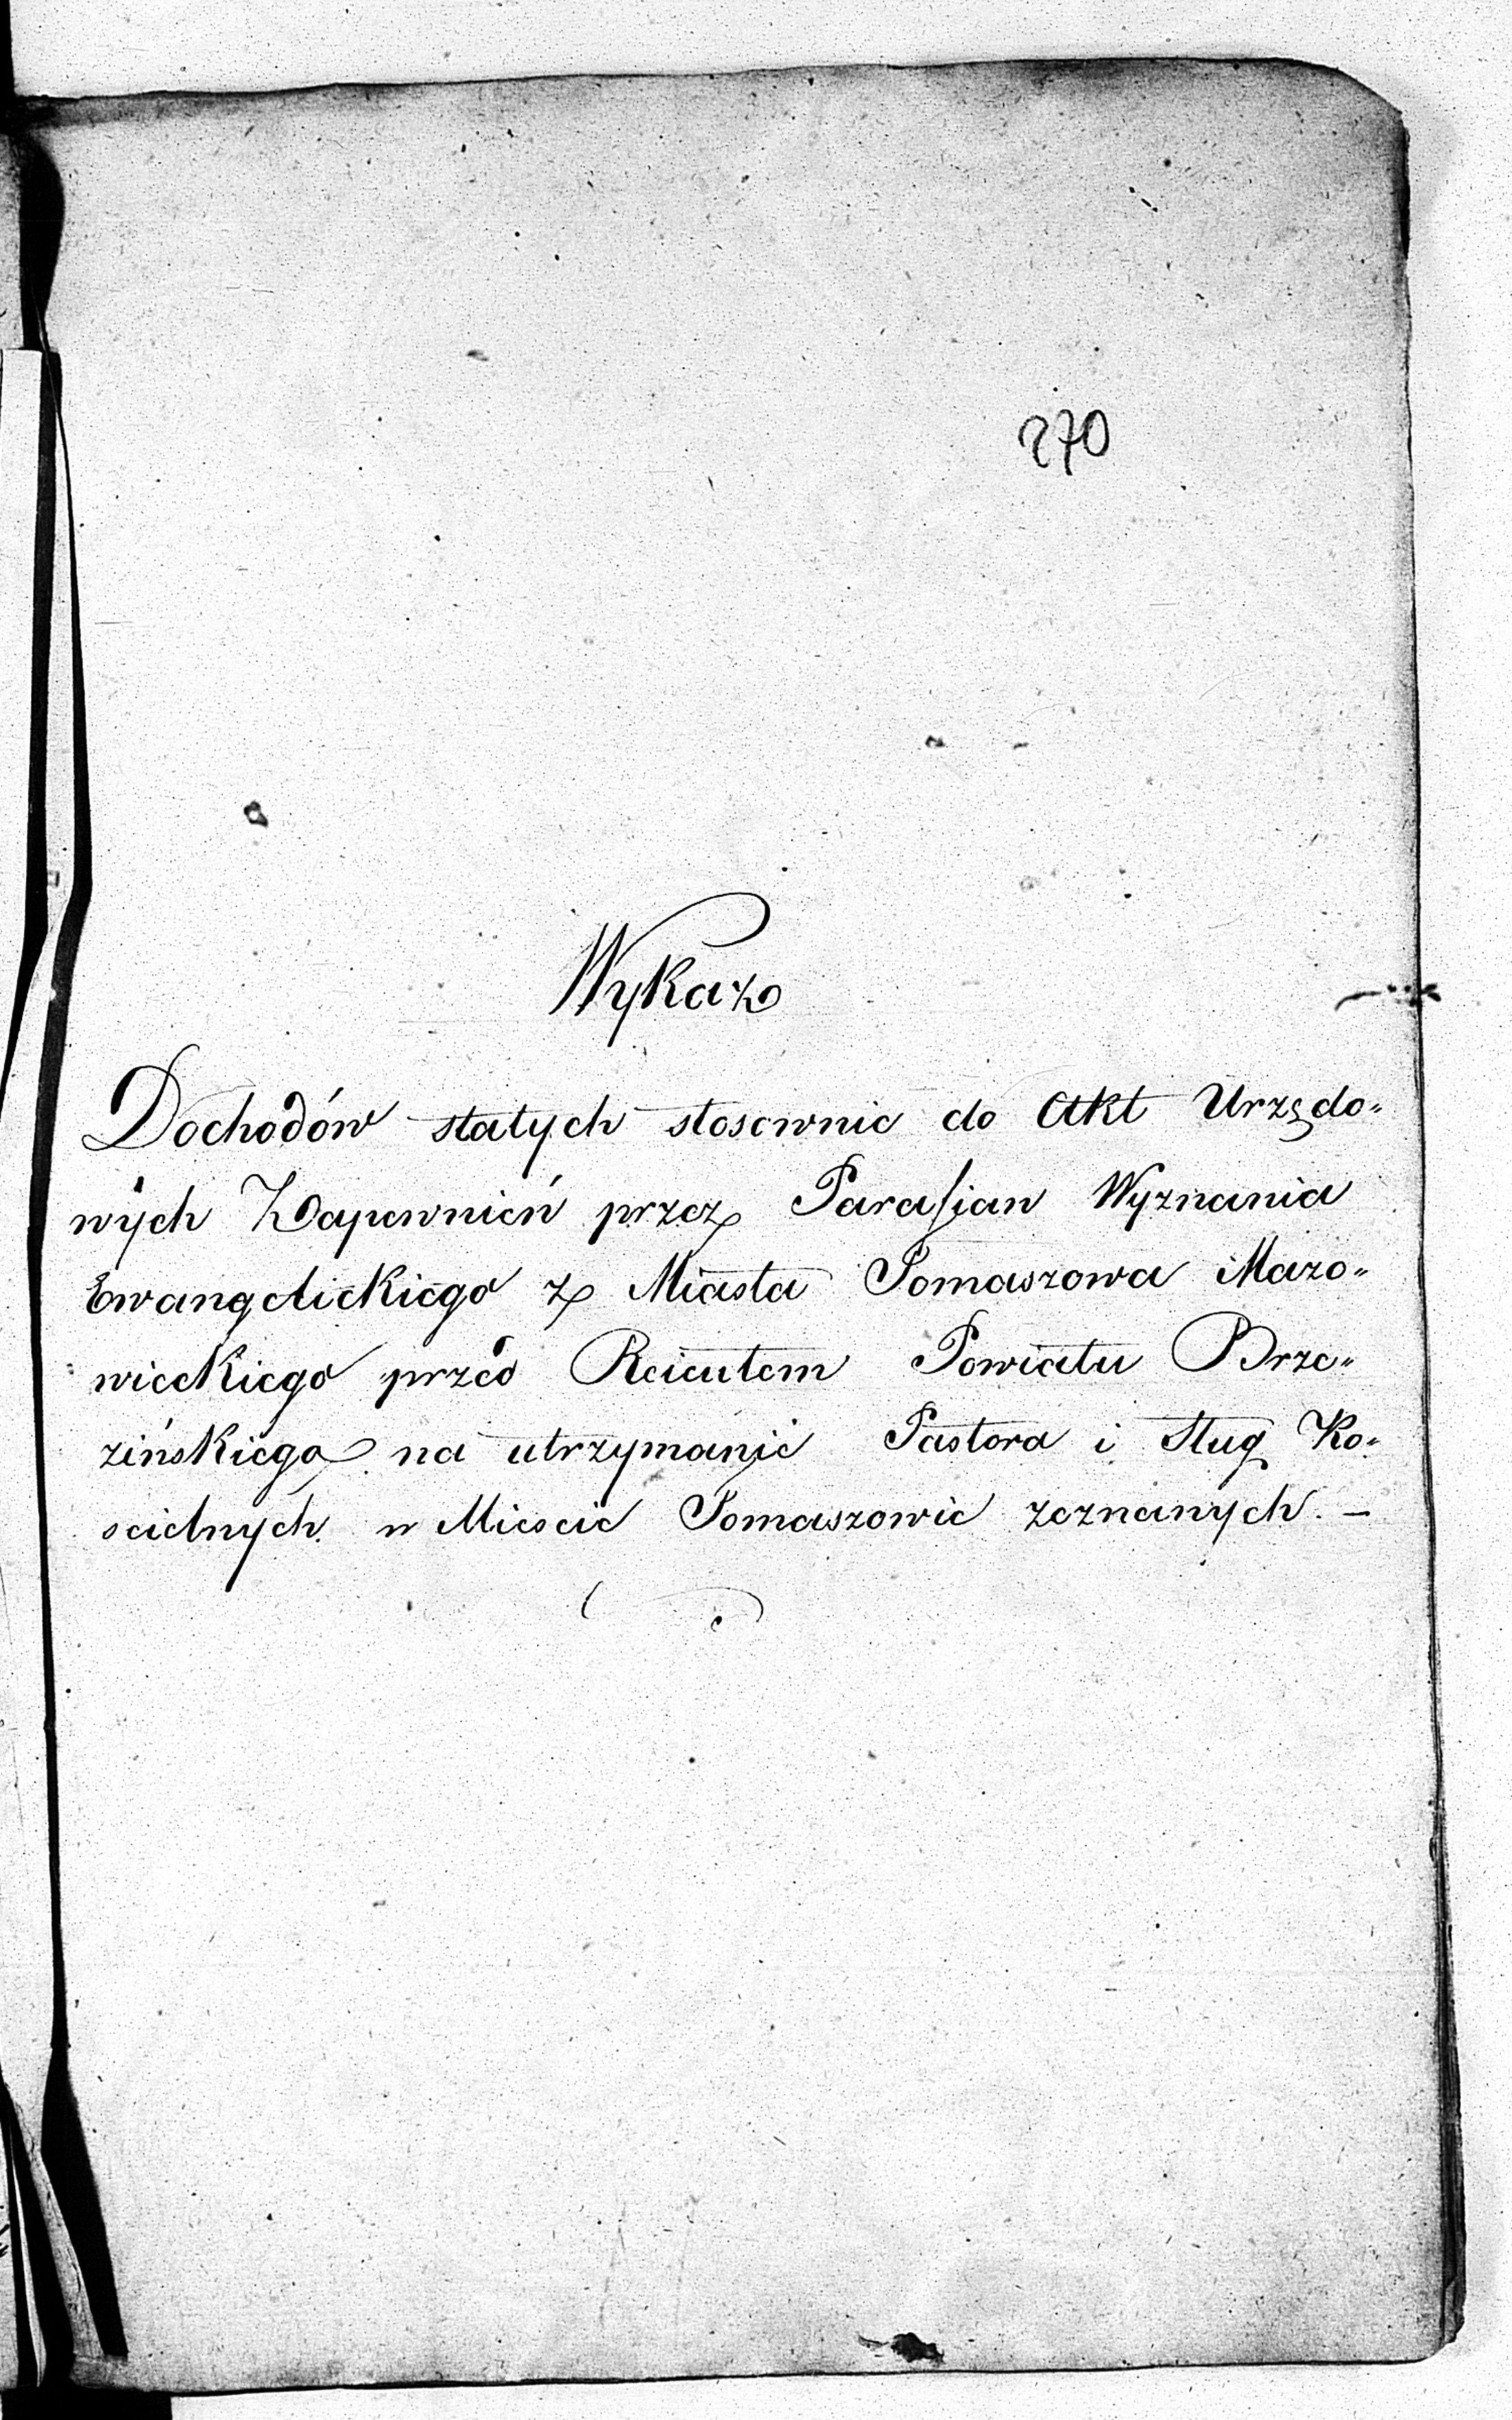 270
Wykaz
Dochodów stałych stosownie do Akt Urzędo-
wych Zapewnień przez Parafian Wyznania
Ewangelickiego z Miasta Tomaszowa Mazo-
wieckiego przed Reientem Powiatu Brze-
zińskiego na utrzymanie Pastora i Sług Ko-
scielnych w Miescie Tomaszowie zeznanych. —